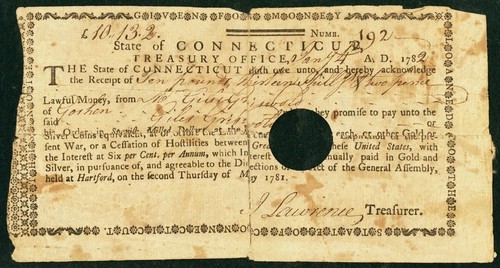 GIVEN FOR MONEY
£10.13.2. NUMB. 192
State of CONNECTICUT,
TREASURY OFFICE, Jany 4 A. D. 1782
THE State of CONNECTICUT doth owe unto, and hereby acknowledge
the Receipt of Ten Pounds thirteen Shill & two pence
Lawful Money, from Mr Giles Griswold
of Goshen they promise to pay unto the
said Giles Griswold or
Silver Coins Equivalent,
sent War, or a Cessation of Hostilities between Great these United States, with
the Interest at Six per Cent. per Annum, which In annually paid in Gold and
Silver, in pursuance of, and agreeable to the Di ections of Act of the General Assembly,
held at Hartford, on the second Thursday of M y 1781.
J Lawrence Treasurer.